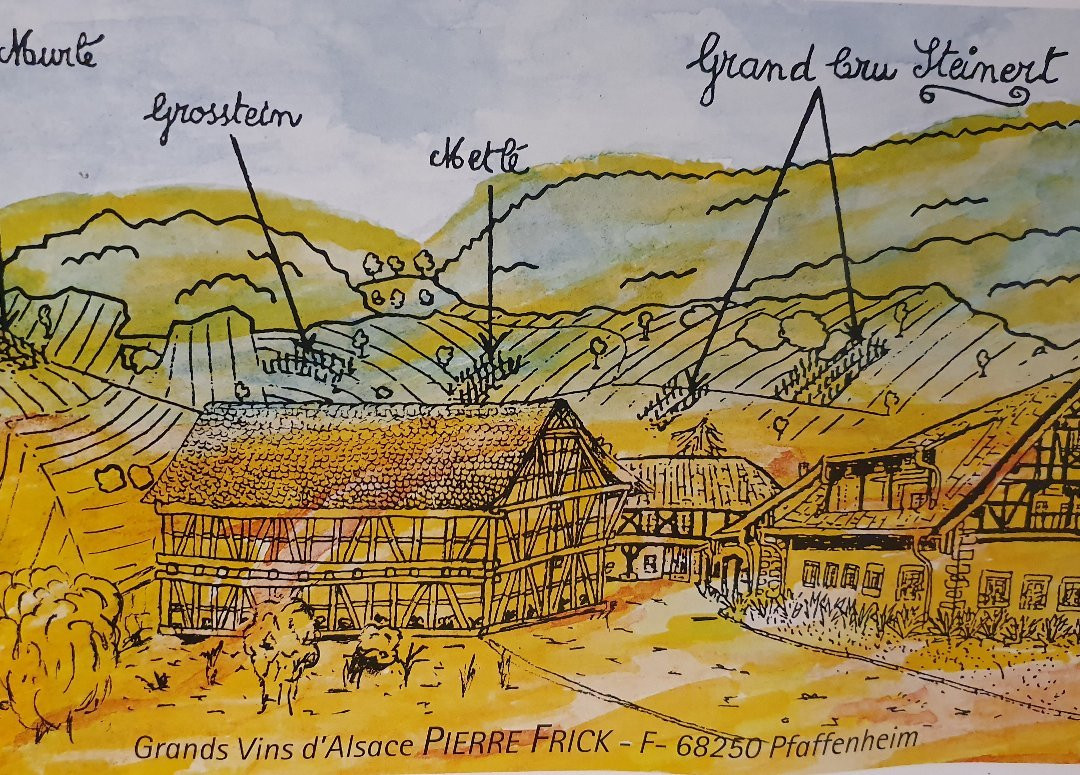 Murlé
Grand Cru Steinert
Grosstein
Metlé
Grands Vins d'Alsace PIERRE FRICK - F- 68250 Pfaffenheim